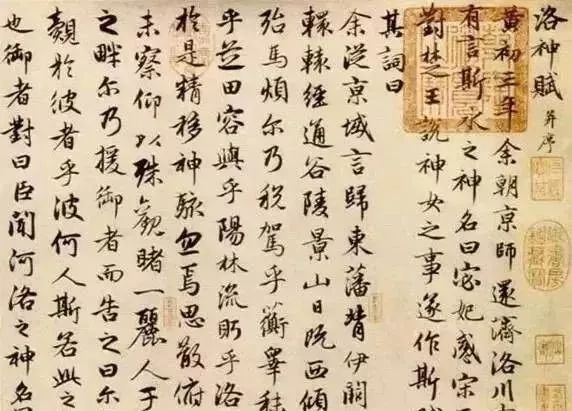 洛神賦 并序
黃初三年余朝京師還濟洛川
有言斯水之神名曰宓妃感宋
對楚王說神女之事遂作斯
其詞曰
余從京域言歸東藩背伊闕
轘轅經通谷陵景山日既西傾
殆馬煩尔乃稅駕乎蘅皋秣
乎芝田容與乎陽林流眄乎洛
於是精移神駭忽焉思散俯
未察仰以殊觀睹一麗人于
之畔尔乃援御者而告之曰尔
覿於彼者乎彼何人斯若此之
也御者對曰臣聞河洛之神名